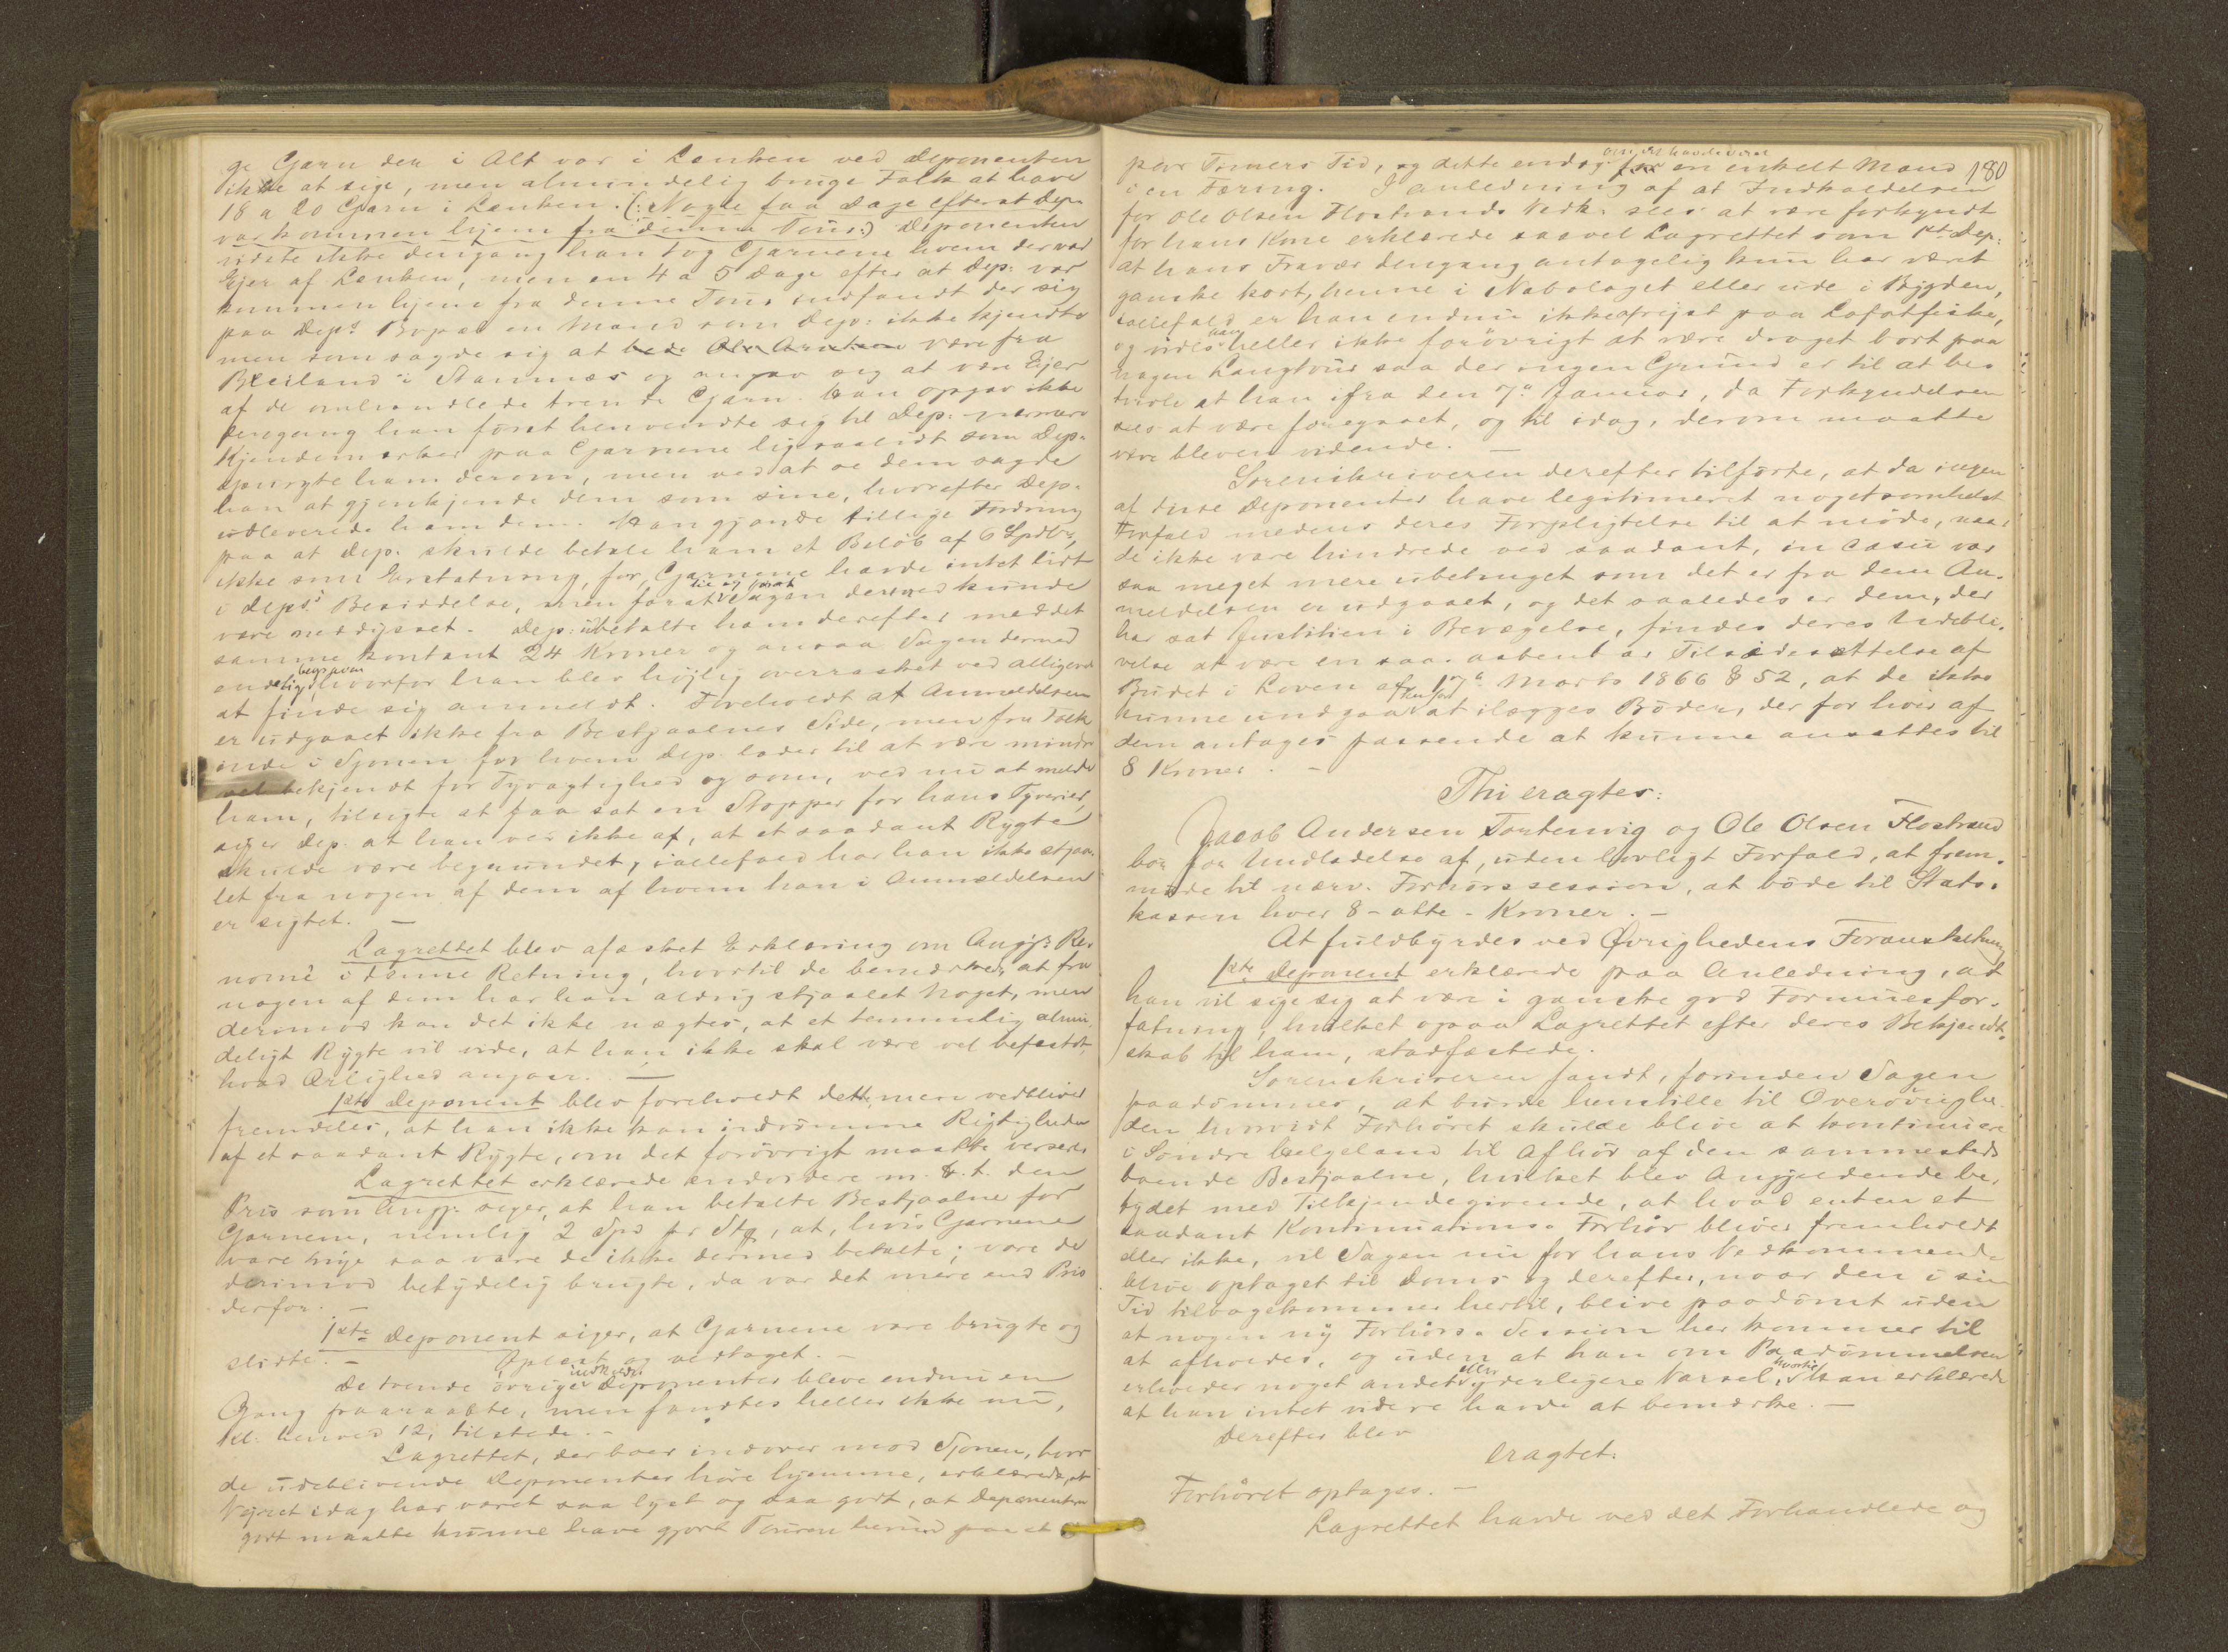 ge Garn der i Alt var i Lenken ved Deponenten
ikke at sige, men almindelig bruge Folk at have
18 a 20 Garn i Lenken. (: Nogle faa Dage efterat Dep.
var kommen hjem fra denne Tour :) Deponenten
vidste ikke dengang han tog Garnene hvem der var
Ejer af Lenken, men en 4 a 5 Dage efter at Dep: var
kommen hjem fra denne Tour indfandt der sig
paa Dep.s Bopæl en Mand som Dep: ikke kjendte
men som sagde sig at være fra
Beiland i Stamnæs og angav sig at være Ejer
af de omhandlede trende Garn. Han opgav ikke
dengang han først henvendte sig til Dep: nærmere
Kjendemærker paa Garnene ligesaalidt som Dep.
spurgte ham derom, men ved at se dem sagde
han at gjenkjende dem som sine, hvorefter Dep.
udleverede ham dem. Han gjorde tillige Fordring
paa at Dep. skulde betale ham et Beløb af 6 Spdlr,
ikke som Erstatning, for Garnene havde intet lidt
i Dep.s Besiddelse, men forat Sagen dermed kunde
være neddysset. Dep: udbetalte ham derefter med det
samme kontant 24 Kroner og ansaa Sagen dermed
endelig begraven, hvorfor han blev højlig overrasket ved alligevel
at finde sig anmeldt. Foreholdt at Anmeldelsen
er udgaaet ikke fra Bestjaalnes Side, men fra Folk
inde i Sjonen for hvem Dep. lader til at være mindre
vel bekjendt for Tyvagtighed og som, ved nu at melde
ham, tilsigte at faa sat en Stopper for hans Tyverier,
siger Dep. at han ved ikke af, at et saadant Rygte
skulde være begrundet, iallefald har han ikke stjaa-
let fra nogen af dem af hvem han i Anmeldelsen
er sigtet. —
Lagrettet blev afæsket Erklæring om Angjs Re-
nomé i denne Retning, hvortil de bemærkede, at fra
nogen af dem har han aldrig stjaalet Noget, men
derimod kan det ikke nægtes, at et temmelig almin-
deligt Rygte vil vide, at han ikke skal være vel befæstet,
hvad Ærlighed angaar. —
1ste Deponent blev foreholdt dette, men vedbliver
fremdeles, at han ikke kan indrømme Rigtigheden
af et saadant Rygte, om det forøvrigt maatte versere.
Lagrettet erklærede endvidere m. H. t. den
Pris som Angj: siger, at han betalte Bestjaalne for
Garnene, nemlig 2 Spd pr Stk, at, hvis Garnene
vare nye saa vare de ikke dermed betalte; vare de
derimod betydelig brugte, da var det mere end Pris
derfor. —
1ste Deponent siger, at Garnene vare brugte og
slidte. — Oplæst og vedtaget. —
De tvende øvrige indkaldte Deponenter bleve endnu en
Gang paaraabte, men fandtes heller ikke nu,
Kl: henved 12, tilstede. —
Lagrettet, der boer indover mod Sjonen, hvor
de udeblivende Deponenter høre hjemme, erklærede, at
Vejret idag har været saa lyst og saa godt, at Deponenterne
godt maatte kunne have gjort Touren herud paa et
par Timers Tid, og dette endog om det havde været en enkelt Mand 180
i en Færing. I anledning af at Indkaldelsen
for Ole Olsen Flostrands Vedk: sees at være forkyndt
for hans Kone erklærede saavel Lagrettet som 1ste Dep:
at hans Fravær dengang antagelig kun har været
ganske kort, henne i Nabolaget eller ude i Bygden,
iallefald er han endnu ikke afrejst paa Lofotfiske,
og vides han heller ikke forøvrigt at være draget bort paa
nogen Langtour saa der ingen Grund er til at be-
tvivle at han ifra den 7de Januar, da Forkyndelsen
sees at være foregaaet, og til idag, derom maatte
være bleven vidende. —
Sorenskriveren derefter tilførte, at da ingen
af disse Deponenter have legitimeret nogetsomhelst
Forfald medens deres Forpligtelse til at møde, naar
de ikke vare hindrede ved saadant, in casu var
saa meget mere ubetinget som det er fra dem An-
meldelsen er udgaaet, og det saaledes er dem, der
har sat Justitien i Bevægelse, findes deres Udebli-
velse at være en saa aabenbar Tilsidesættelse af
Budet i Loven af 17de Marts 1866 § 52, at de ikke
kunne undgaa herfor at ilægges Bøder, der for hver af
dem antages passende at kunne ansættes til
8 Kroner. —
Thi eragtes:
Jacob Andersen Tortenvig og Ole Olsen Flostrand
bør for Undladelse af, uden lovligt Forfald, at frem-
møde til nærv. Forhørssession, at bøde til Stats-
kassen hver 8 - otte - Kroner. —
At fuldbyrdes ved Øvrighedens Foranstaltning
1ste Deponent erklærede paa Anledning, at
han vil sige sig at være i ganske god Formuesfor-
fatning, hvilket ogsaa Lagrettet efter deres Bekjendt-
skab til ham, stadfæstede.
Sorenskriveren fandt, forinden Sagen
paadømmes, at burde henstille til Overøvrighe-
den hvorvidt Forhøret skulde blive at kontinuere
i Søndre Helgeland til Afhør af den sammesteds
boende Bestjaalne, hvilket blev Angjældende be-
tydet med Tilkjendegivende, at hvad enten et
saadant Kontinuations-Forhør bliver fremholdt
eller ikke, vil Sagen nu for hans Vedkommende
blive optaget til Doms og derefter, naar den i sin
Tid tilbagekommer hertil, blive paadømt uden
at nogen ny Forhørs-Session her kommer til
at afholdes, og uden at han om Paadømmelsen
erholder noget andet eller yderligere Varsel, hvortil han erklærede
at han intet videre havde at bemærke. —
Derefter blev
eragtet:
Forhøret optages. —
Lagrettet havde ved det Forhandlede og